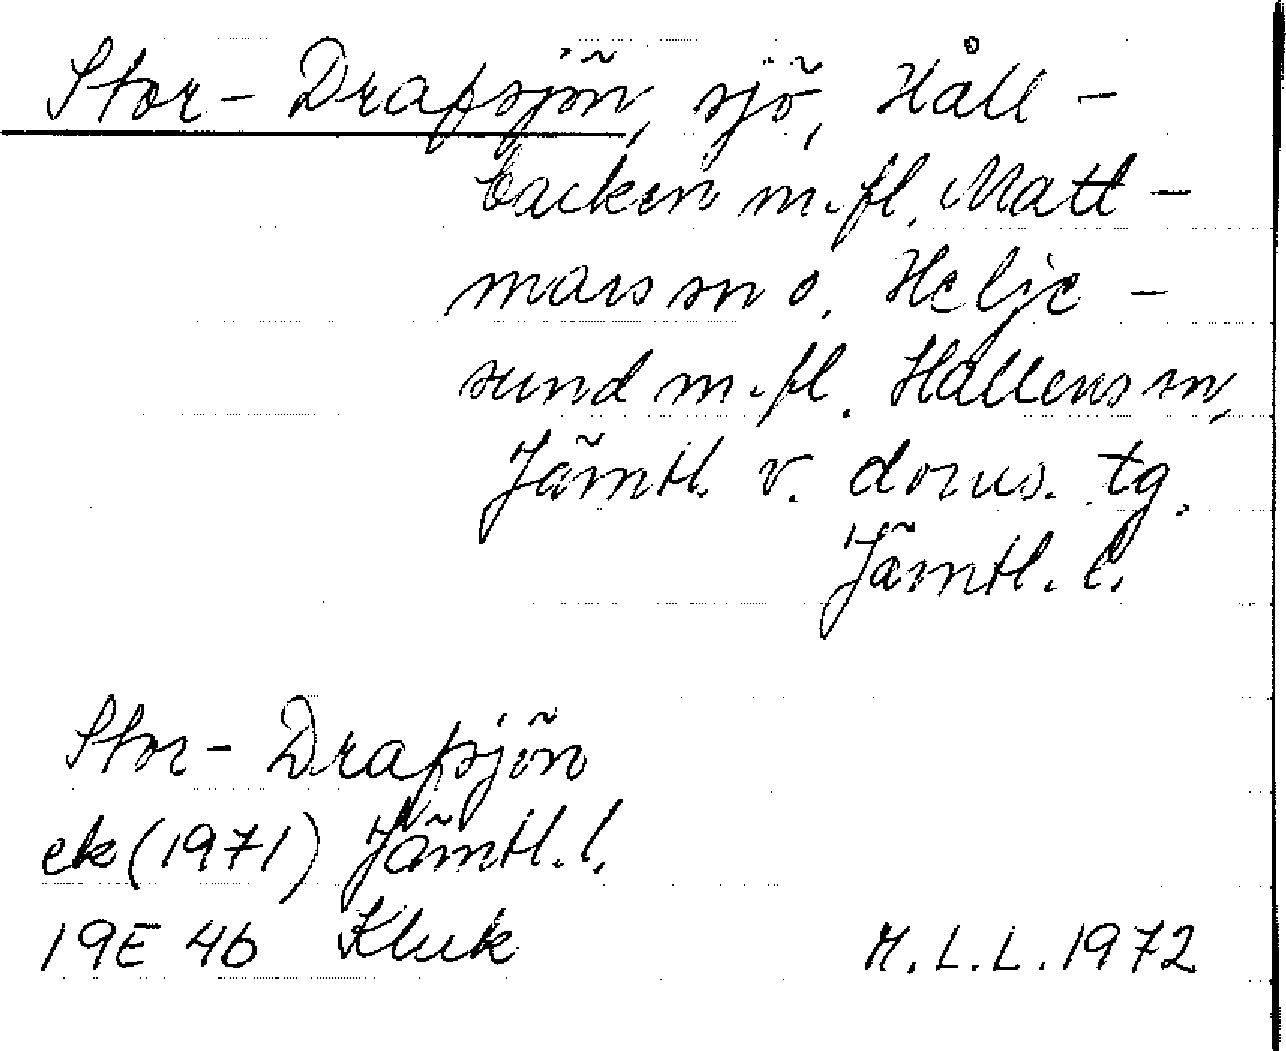 Stor-Drafsjön, sjö, Håll-
backen m.fl. Matt-
mars sn o. Helje-
sund m.fl. Hallens sn,
Jämtl. v. doms. tg.
Jämtl. l.
Stor-Drafsjön
ek (1971) Jämtl. l.
19E 4b Kluk
M.L.L. 1972